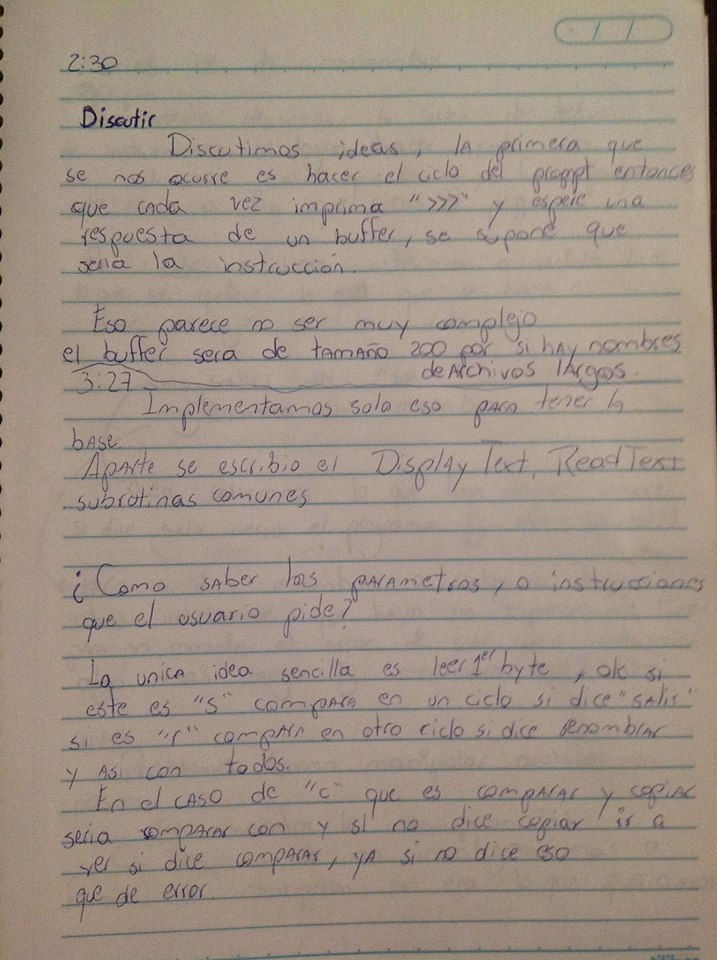 2:30
Discutir
Discutimos ideas, la primera que
se nos ocurre es hacer el ciclo del entonces
que cada vez imprima ">>>" y espere una
respuesta de un buffer, se supone que
sería la instrucción.
Eso parece no ser muy complejo
el buffer sera de tamaño 200 por si hay nombres
de Archivos largos.
3:27
Implementamos solo eso para tener la
base.
Aparte se escribio el Display Text, Read Text
subrutinas comunes
¿Como saber los parametros, o instrucciones
que el usuario pide?
La unica idea sencilla es leer 1er byte, ok si
este es "S" compara en un ciclo si dice "salir"
si es "r" compara en otro ciclo si dice renombrar
y asi con todos.
En el caso de "c" que es comparar y copiar
seria comparar con y si no dice copiar ir a
ver si dice comparar, ya si no dice eso
que de error.